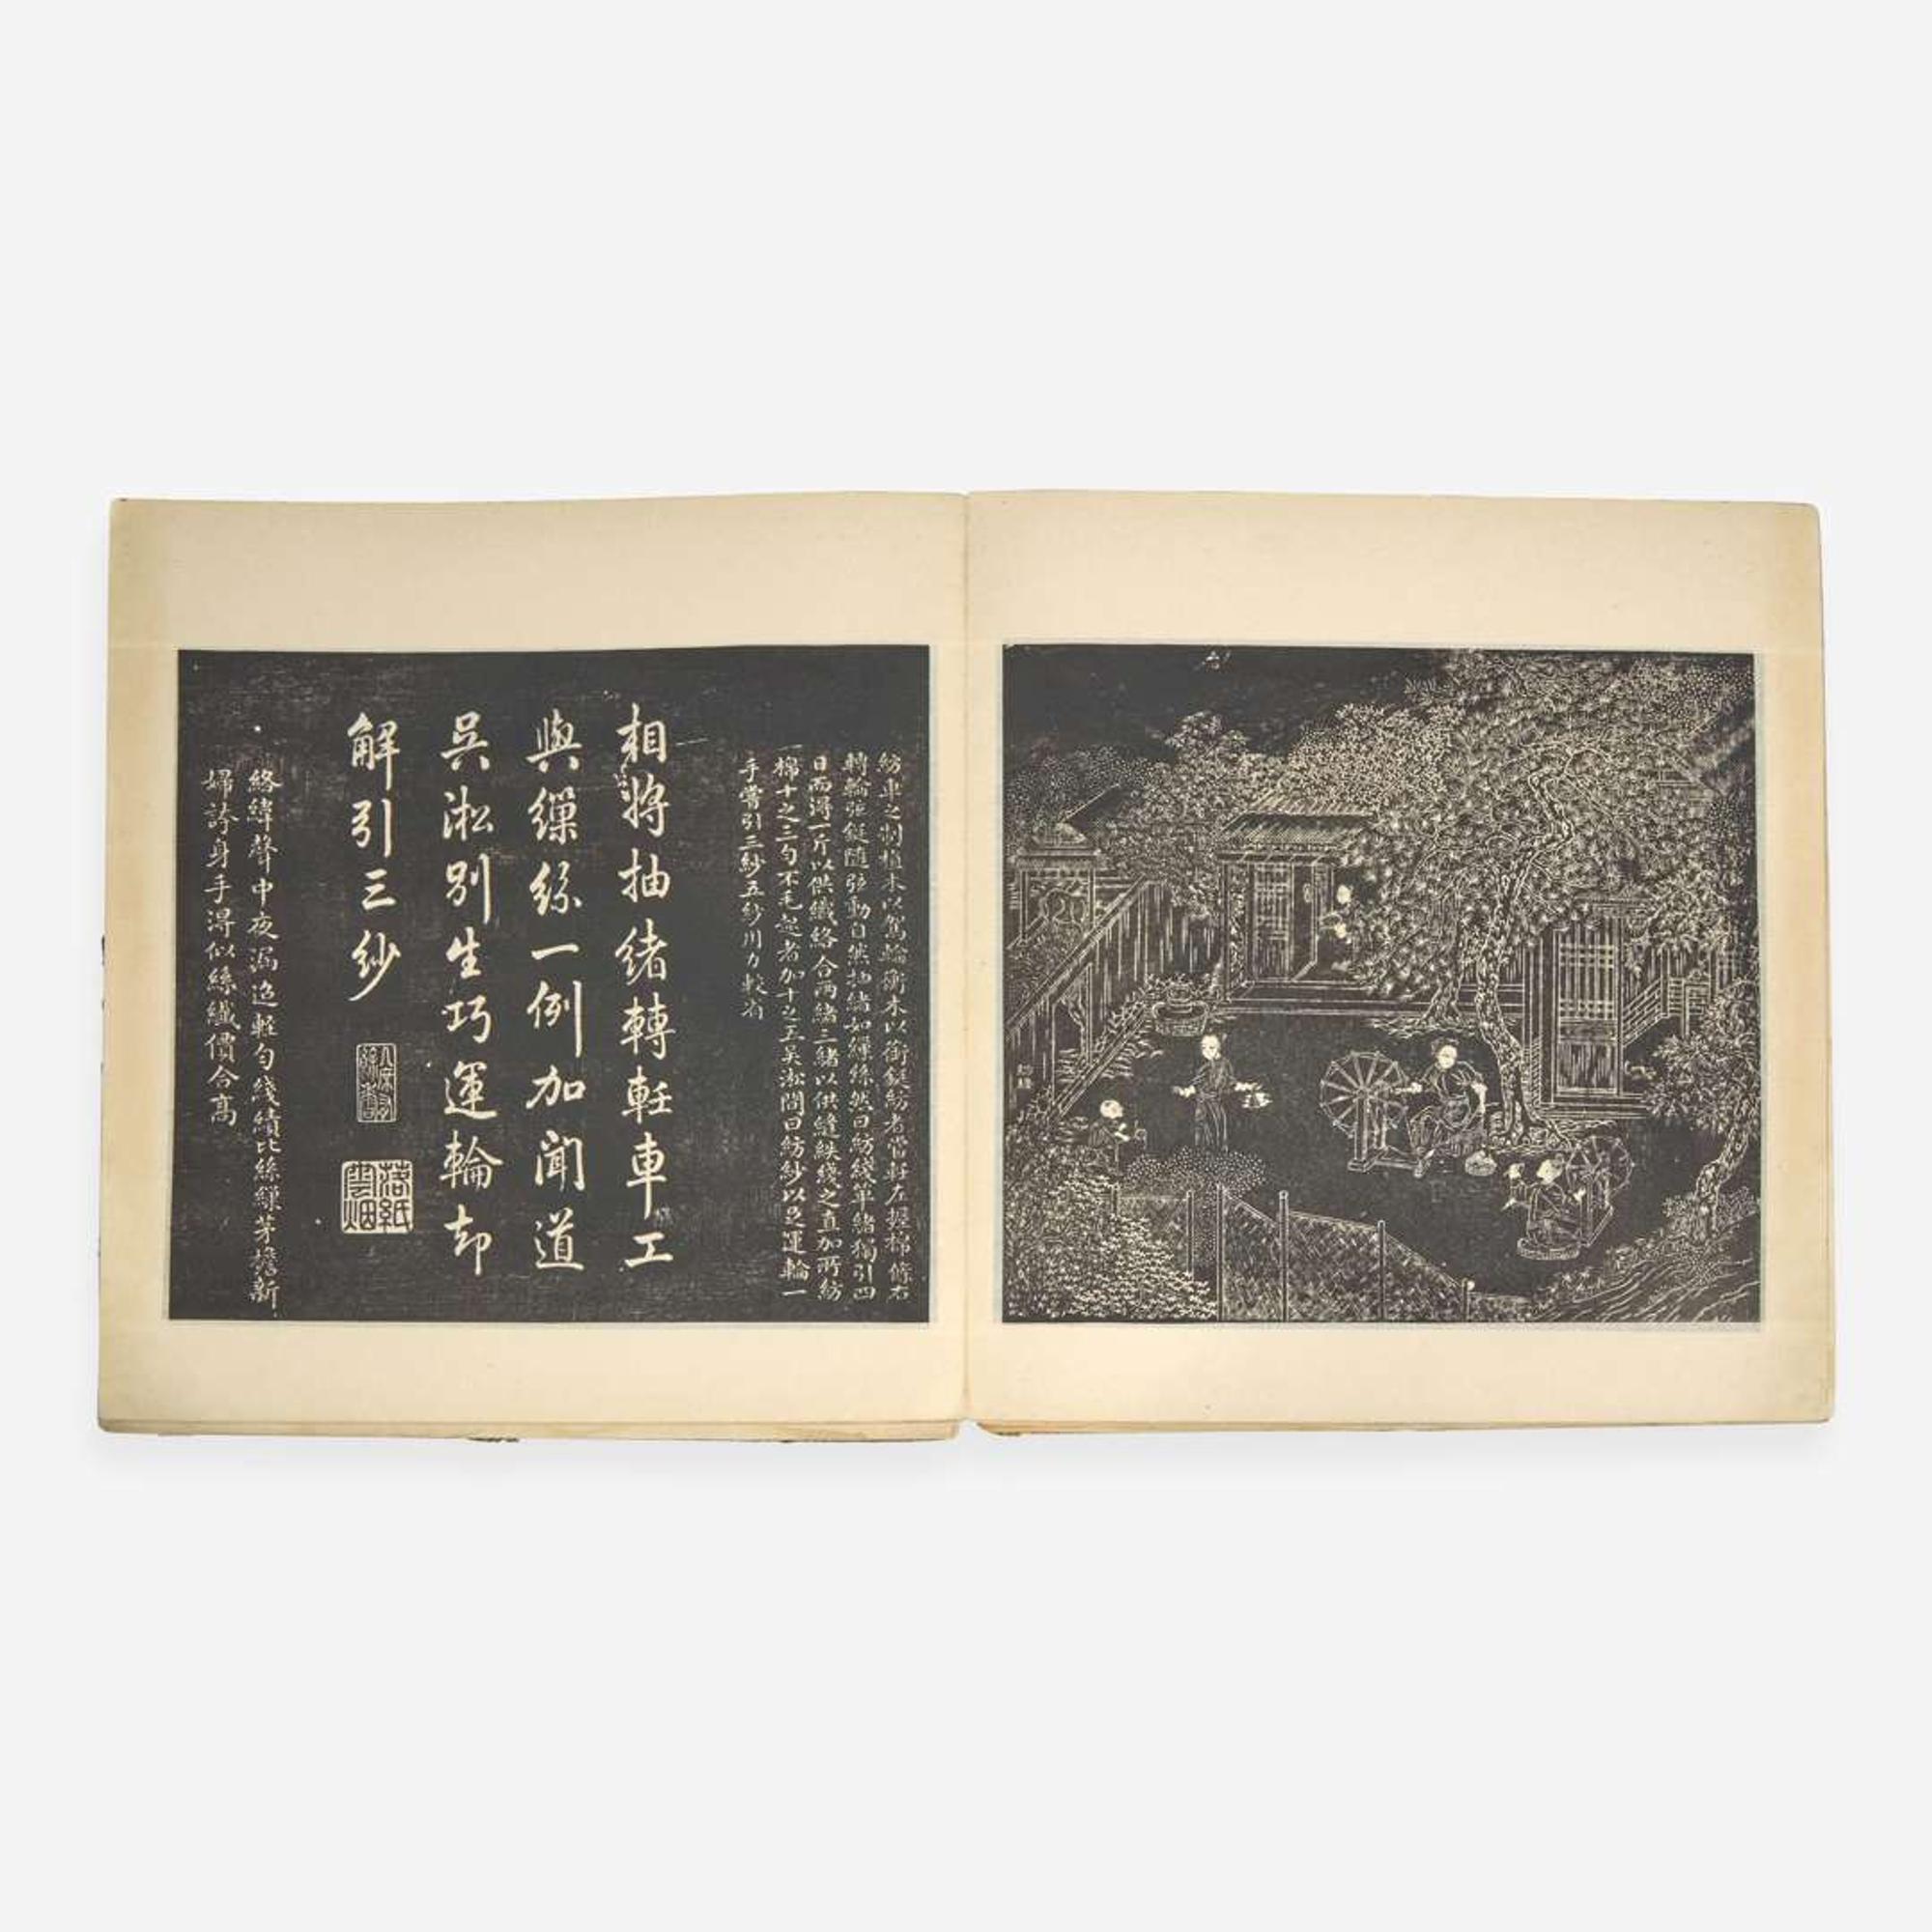 紡線
紡車之制植木以駕輪衡木以銜鋌紡者當軖左握棉條右
轉輪弦鋌隨弦動自然抽緒如繅絲然曰紡綫單緒獨引四
日而得一斤以供織絡合兩緒三緒以供縫紩綫之直加所紡
棉十之三勻不毛起者加十之五吳淞間曰紡紗以足運輪一
手嘗引三紗五紗用力較省
相將抽緒轉軖車工
與繅絲一例加聞道
吳淞別生巧運輪却
解引三紗
落紙雲烟
絡緯聲中夜漏迢輕勻綫績比絲繅茅簷新
婦誇身手得似絲纖價合高